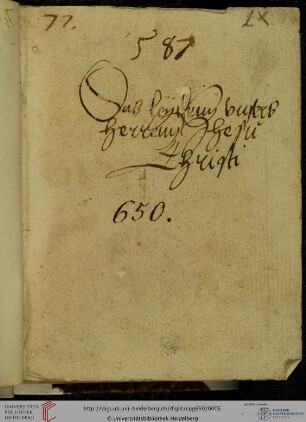 77. LX
587
Das leyden unsers
Herrenn Jhesu
Christi
650.
UNIVERSITÄTS-
BIBLIOTHEK
HEIDELBERG
http://digi.ub.uni-heidelberg.de/diglit/cpg650/0005
© Universitätsbibliothek Heidelberg